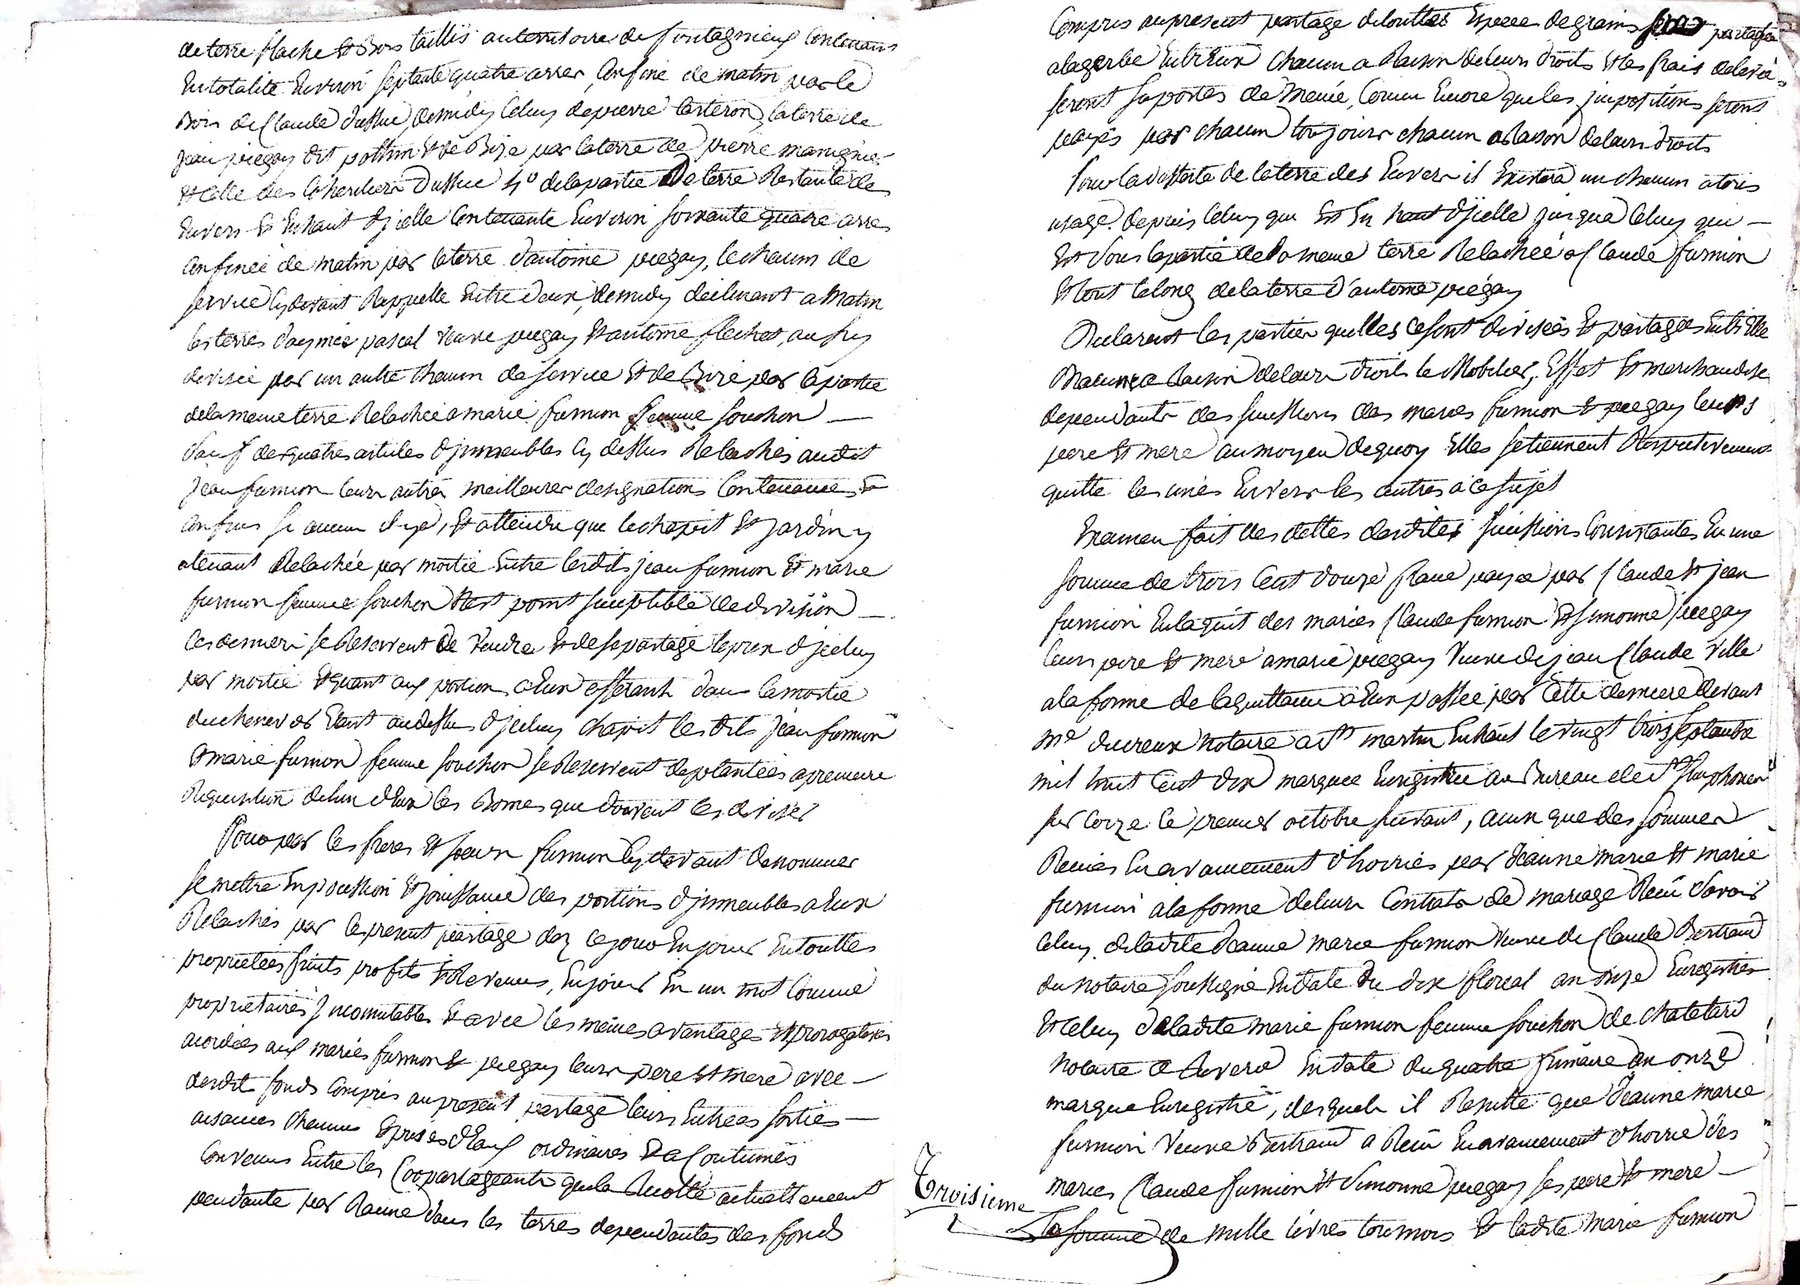 de terre flache et Bois taillis au territoire de fontagnieux Contenans
En totalité Environ septante quatre arres, Confiné de matin par le
Bois de Claude Dussuc, de midy Celuy de pierre terteron, la terre de
Jean piegay dit pothin et de Bize par la terre de pierre manignié
et Celle des Cohéritiers Dussuc 4º de la partie De terre Restante des
Envers et En haut d'jcelle Contenante Environ soixante quatre arres
Confinée de matin par la terre d'antoine piegay, le chemin de
service Cy devant Rappellé Entre deux, de midy déclinant a Matin
les terres d'aymée pascal veuve piegay et antoine flechet, au soy
divisée par un autre Chemin de service et de Bize par la partie
de la meme terre Relachée a marie fumion femme souchon —
Sauf des quatre articles d'jmmeubles Cy dessus Relachés audit
Jean fumion leurs autres meilleures designations Contenances et
Confins si aucun il y a, et attendu que le chapit et jardin y
atenant Relachée par moitié Entre lesdits jean fumion et marie
fumion femme souchon N'est point suceptible de division —
Ces derniers se Reservent de Vendre et de se partagé le prix d'jceluy
par moitié et quant aux portions a Eux afferants dans la moitié
du chenevier Etant au dessus d'jceluy chapit les dits Jean fumion
et marie fumion femme souchon se Reservent de plantées a premiere
Requisition de l'un d'Eux les Bornes que doivent les divisés
Pour par les freres et soeurs fumion Cy devant denommés
se mettre En possession et jouissance des portions d'jmmeubles a Eux
Relachés par le present partage dez ce jour En jouir En touttes
proprietées fruits profits et Revenus, En jouir En un mot Comme
proprietaires jncomutables et avec les mêmes avantages et prorogatives
acordées aux mariés fumion et piegay leurs pere et mere avec —
desdits fonds Compris au present partage leurs Entrées sorties —
aisances Chemins et prises d'Eaux ordinaires et acoutumés
Convenus Entre les Copartageants que la Recolte actuellement
pendante par Racine dans les terres dependantes des fonds
Compris au present partage de touttes Especes de grains sera partagée
a la gerbe Entr'Eux Chacun a Raison de leurs droits et les frais de levée
seront suportés de meme, Comme Encore que les jmpositions seront
payés par chacun toujours chacun a Raison de leurs droits
Pour la desserte de la terre des Envers il Existera un chemin a tous
usage depuis Celuy qui Est En haut d'jcelle jusqua Celuy qui —
Est sous la partie de la meme terre Relachée a Claude fumion
et tout le long de la terre d'antoine piégay
Declarent les parties qu'elles ce sont divisées et partagées Entr'Elle
Chacune a Raison de leurs droits le Mobilier, Effet et marchandise
dependants des successions des mariés fumion et piegay leurs
pere et mere au moyen de quoy Elles se tiennent Respectivement
quitte les unes Envers les autres a ce sujet
Examen fait des dettes desdites successions Consistantes En une
somme de trois Cent douze franc payée par Claude et jean
fumion En l'aquit des mariés Claude fumion et Simonne piegay
leurs pere et mere a marie piegay Veuve de jean Claude Ville
a la forme de la quittance a Eux passée par Cette derniere devant
Me ducreux notaire a St martin En haut le vingt trois septembre
mil huit Cent dix marquée Enregistrée au Bureau de St Simphorien
sur Coize le premier octobre suivant, ainsi que des sommes
Recues En avancement d'hoiries par Jeanne marie et marie
fumion a la forme de leurs Contrats de mariage Recu Savoir
Celuy de ladite Jeanne marie fumion Veuve de Claude Bertrand
du notaire soussigné En date du dix floreal an onze Enregistré
et Celuy de ladite marie fumion femme souchon de chatelard
notaire a Duerne En date du quatre frimaire an onze
marque Enregistré, desquels il Resulte que Jeanne marie
fumion Veuve Bertrand a Recu En avancement d'hoirie des
mariés Claude fumion et Simonne piegay ses pere et mere —
Troisieme
la somme de mille livres tournois et ladite marie fumion